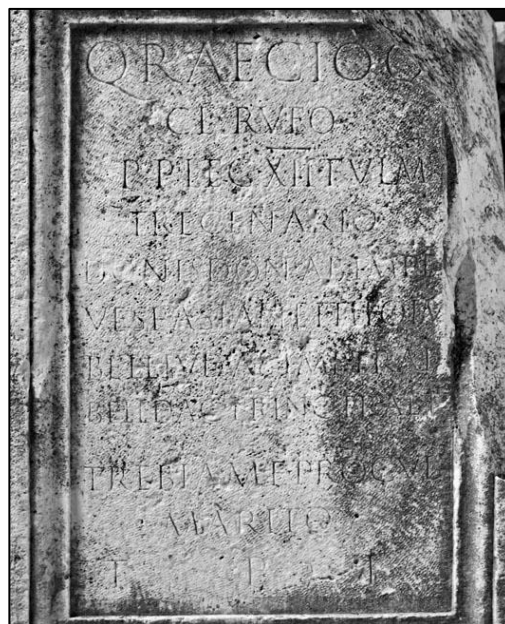 Q RAECIO Q
CL RVFO
P P LEG XII FVLM
TRECENARIO
DONIS DON AB IMP
VESPASIAN ET TITO
BELL IVD AB IMP
BELL DAC PRINC
TREBIA M F PROCVL
MARITO
T P I